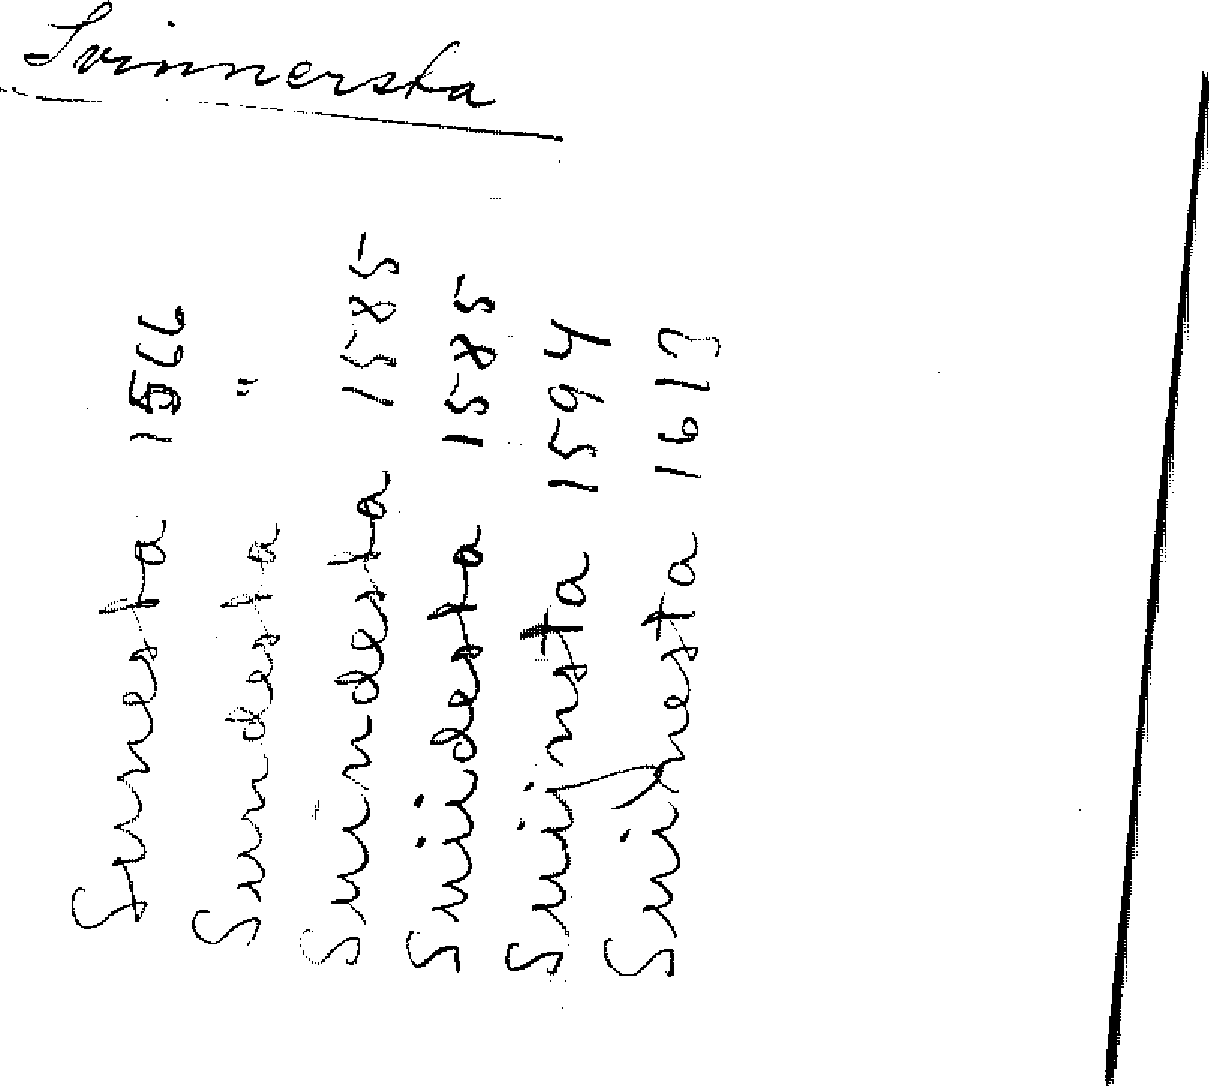 Svinnersta
Sunnesta 1566
Sunndesta "
Suindesta 1585
Suiidesta 1585
Suijnsta 1594
Suijnesta 1613